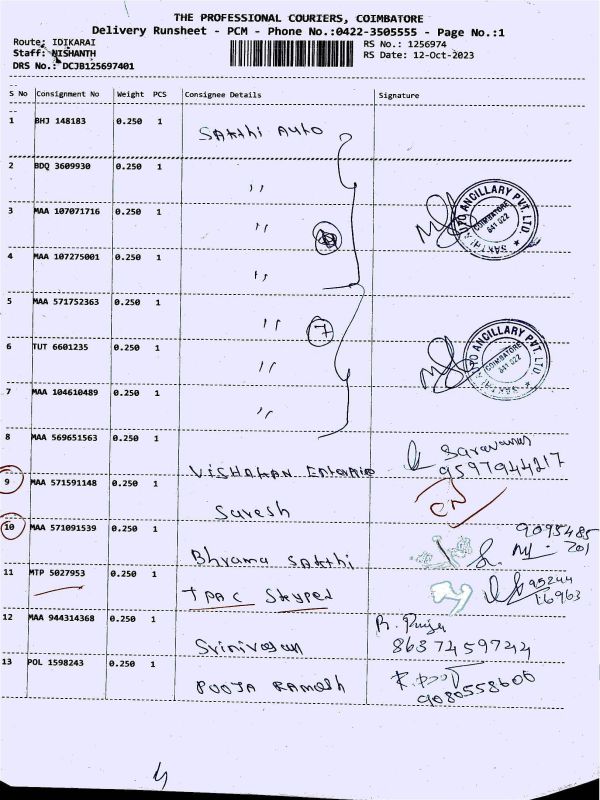 THE PROFESSIONAL COURIERS, COIMBATORE
Delivery Runsheet - PCM - Phone No.:0422-3505555 - Page No.:1
Route: IDIKARAI
Staff: NISHANTH
DRS No.: DCJB125697401
RS No.: 1256974
RS Date: 12-Oct-2023
S No Consignment No Weight PCS Consignee Details Signature
1 BHJ 148183 0.250 1 Sakthi Auto
2 BDQ 3609930 0.250 1 ,,
3 MAA 107071716 0.250 1 ,,
4 MAA 107275001 0.250 1 ,,
5 MAA 571752363 0.250 1 ,,
7
6 TUT 6601235 0.250 1 ,,
7 MAA 104610489 0.250 1 ,,
8 MAA 569651563 0.250 1 Vishakan Enterprie Saravanan
9597944217
9 MAA 571591148 0.250 1 Suresh CN
10 MAA 571091539 0.250 1 Bhrama Sakthi 9095485
201
11 MTP 5027953 0.250 1 TPAC Skyped 95244
16963
12 MAA 944314368 0.250 1 Srinivasan R. Puja
8637459744
13 POL 1598243 0.250 1 POOJA RAMESH
9080558606
ANCILLARY PVT. LTD.
COIMBATORE
641 022
ANCILLARY PVT. LTD.
COIMBATORE
641 022